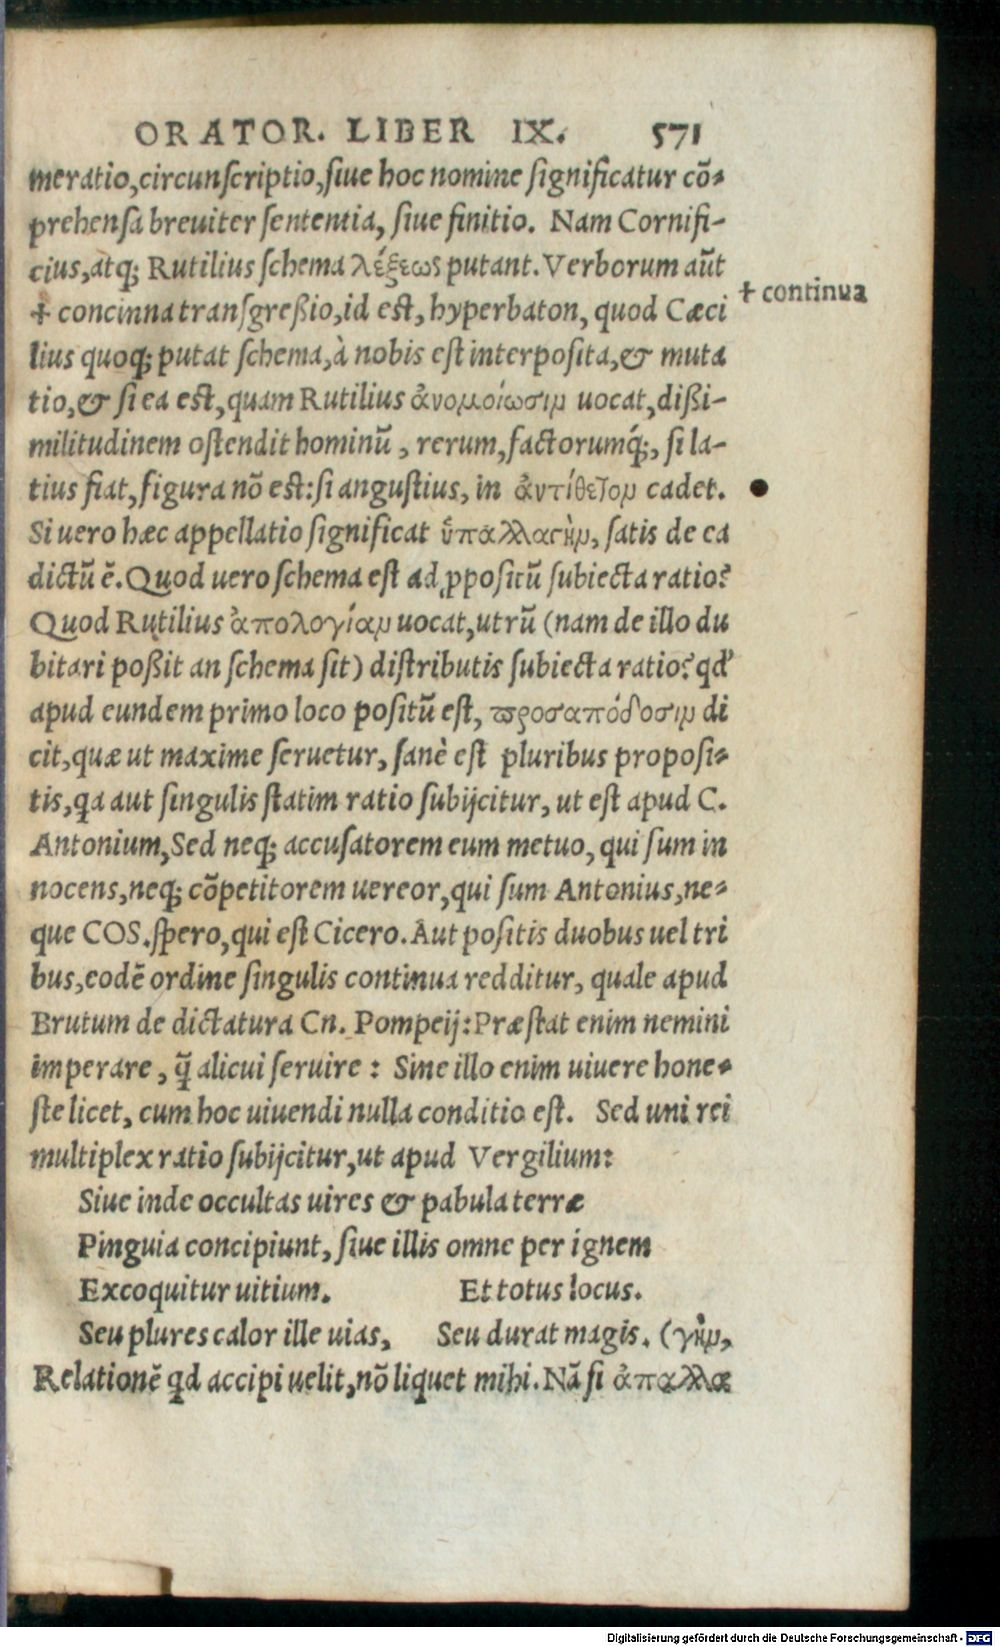 ORATOR. LIBER IX. 571
meratio, circunscriptio, siue hoc nomine significatur cō-
prehensa breuiter sententia, siue finitio. Nam Cornifi-
cius, atq; Rutilius schema λέξεως putant. Verborum aūt
✝ concinna transgreßio, id est, hyperbaton, quod Cæci
✝ continua
lius quoq; putat schema, à nobis est interposita, & muta
tio, & si ea est, quam Rutilius ἀνομοίωσιμ uocat, dißi-
militudinem ostendit hominū, rerum, factorumq́;, si la-
tius fiat, figura nō est: si angustius, in ἀντίθετομ cadet. ●
Si uero hæc appellatio significat ὑπαλλαγὴμ, satis de ea
dictū ē. Quod uero schema est ad ꝓpositū subiecta ratio?
Quod Rutilius ἀπολογίαμ uocat, utrū (nam de illo du
bitari poßit an schema sit) distributis subiecta ratio? qd'
apud eundem primo loco positū est, προσαπόδοσιμ di
cit, quæ ut maxime seruetur, sanè est pluribus proposi-
tis, qa aut singulis statim ratio subijcitur, ut est apud C.
Antonium, Sed neq; accusatorem eum metuo, qui sum in
nocens, neq; cōpetitorem uereor, qui sum Antonius, ne-
que COS. spero, qui est Cicero. Aut positis duobus uel tri
bus, eodē ordine singulis continua redditur, quale apud
Brutum de dictatura Cn. Pompeij: Præstat enim nemini
imperare, q̄ alicui seruire: Sine illo enim uiuere hone-
ste licet, cum hoc uiuendi nulla conditio est. Sed uni rei
multiplex ratio subijcitur, ut apud Vergilium:
Siue inde occultas uires & pabula terræ
Pinguia concipiunt, siue illis omne per ignem
Excoquitur uitium. Et totus locus.
Seu plures calor ille uias, Seu durat magis. (γὴμ,
Relationē qd accipi uelit, nō liquet mihi. Nā si ἀπαλλα
Digitalisierung gefördert durch die Deutsche Forschungsgemeinschaft - DFG